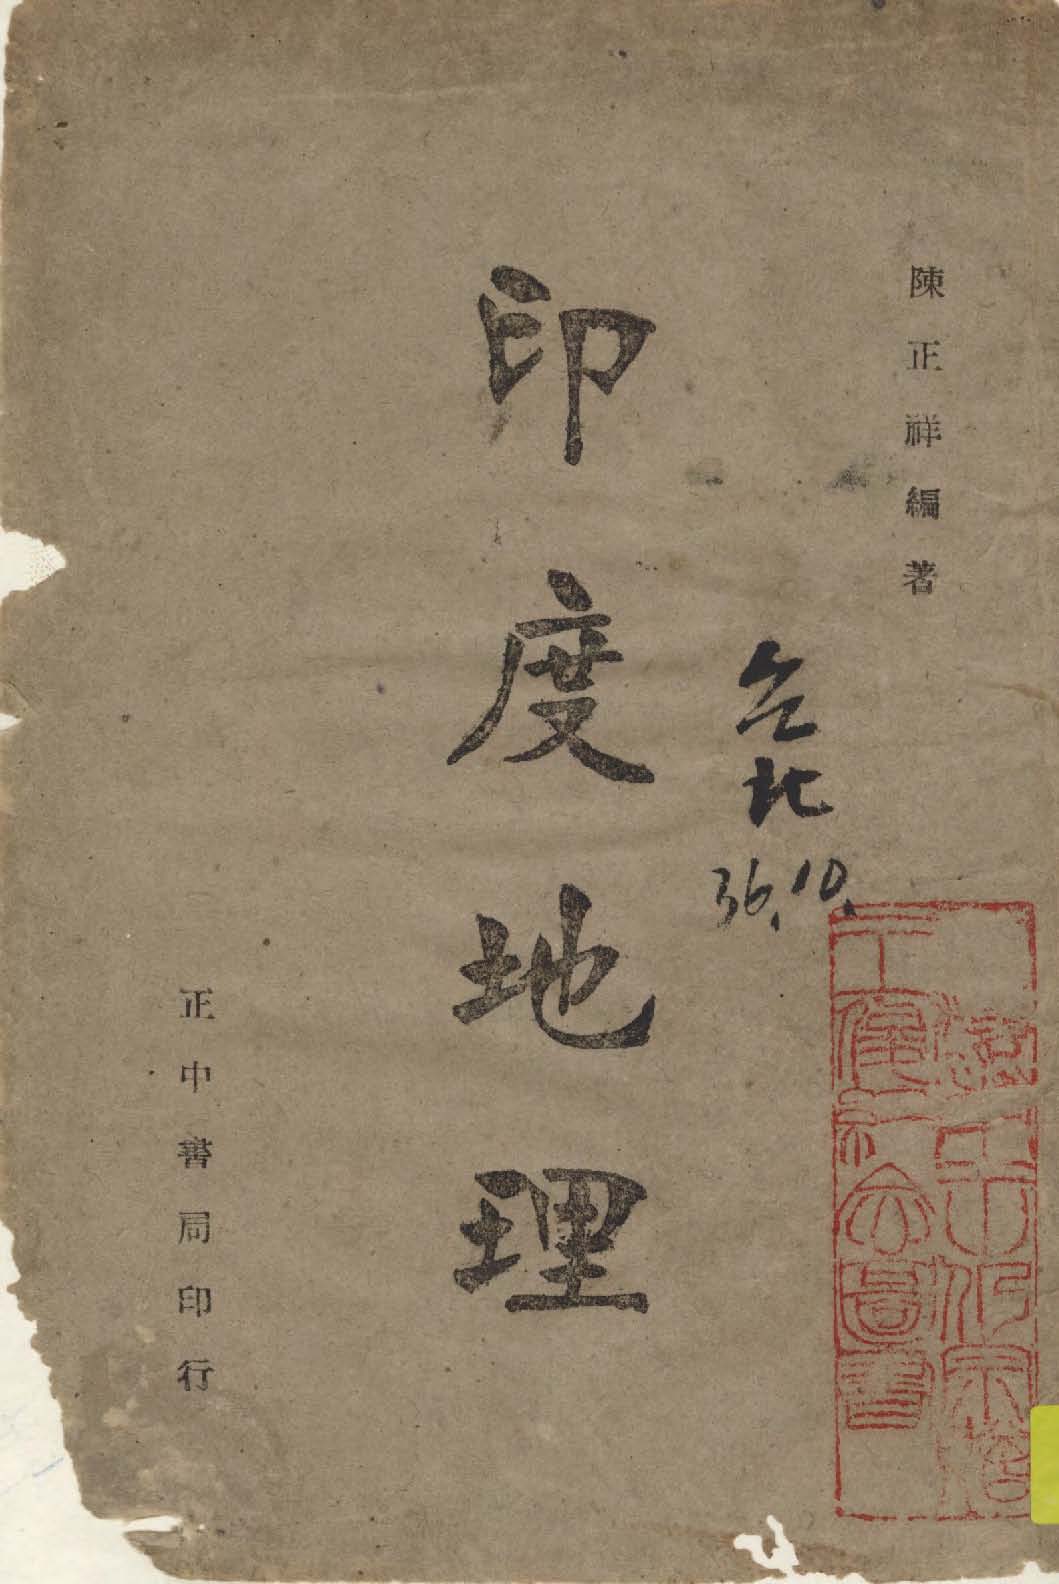 陳正祥編著
印度地理
台北
36.10.
正中書局印行